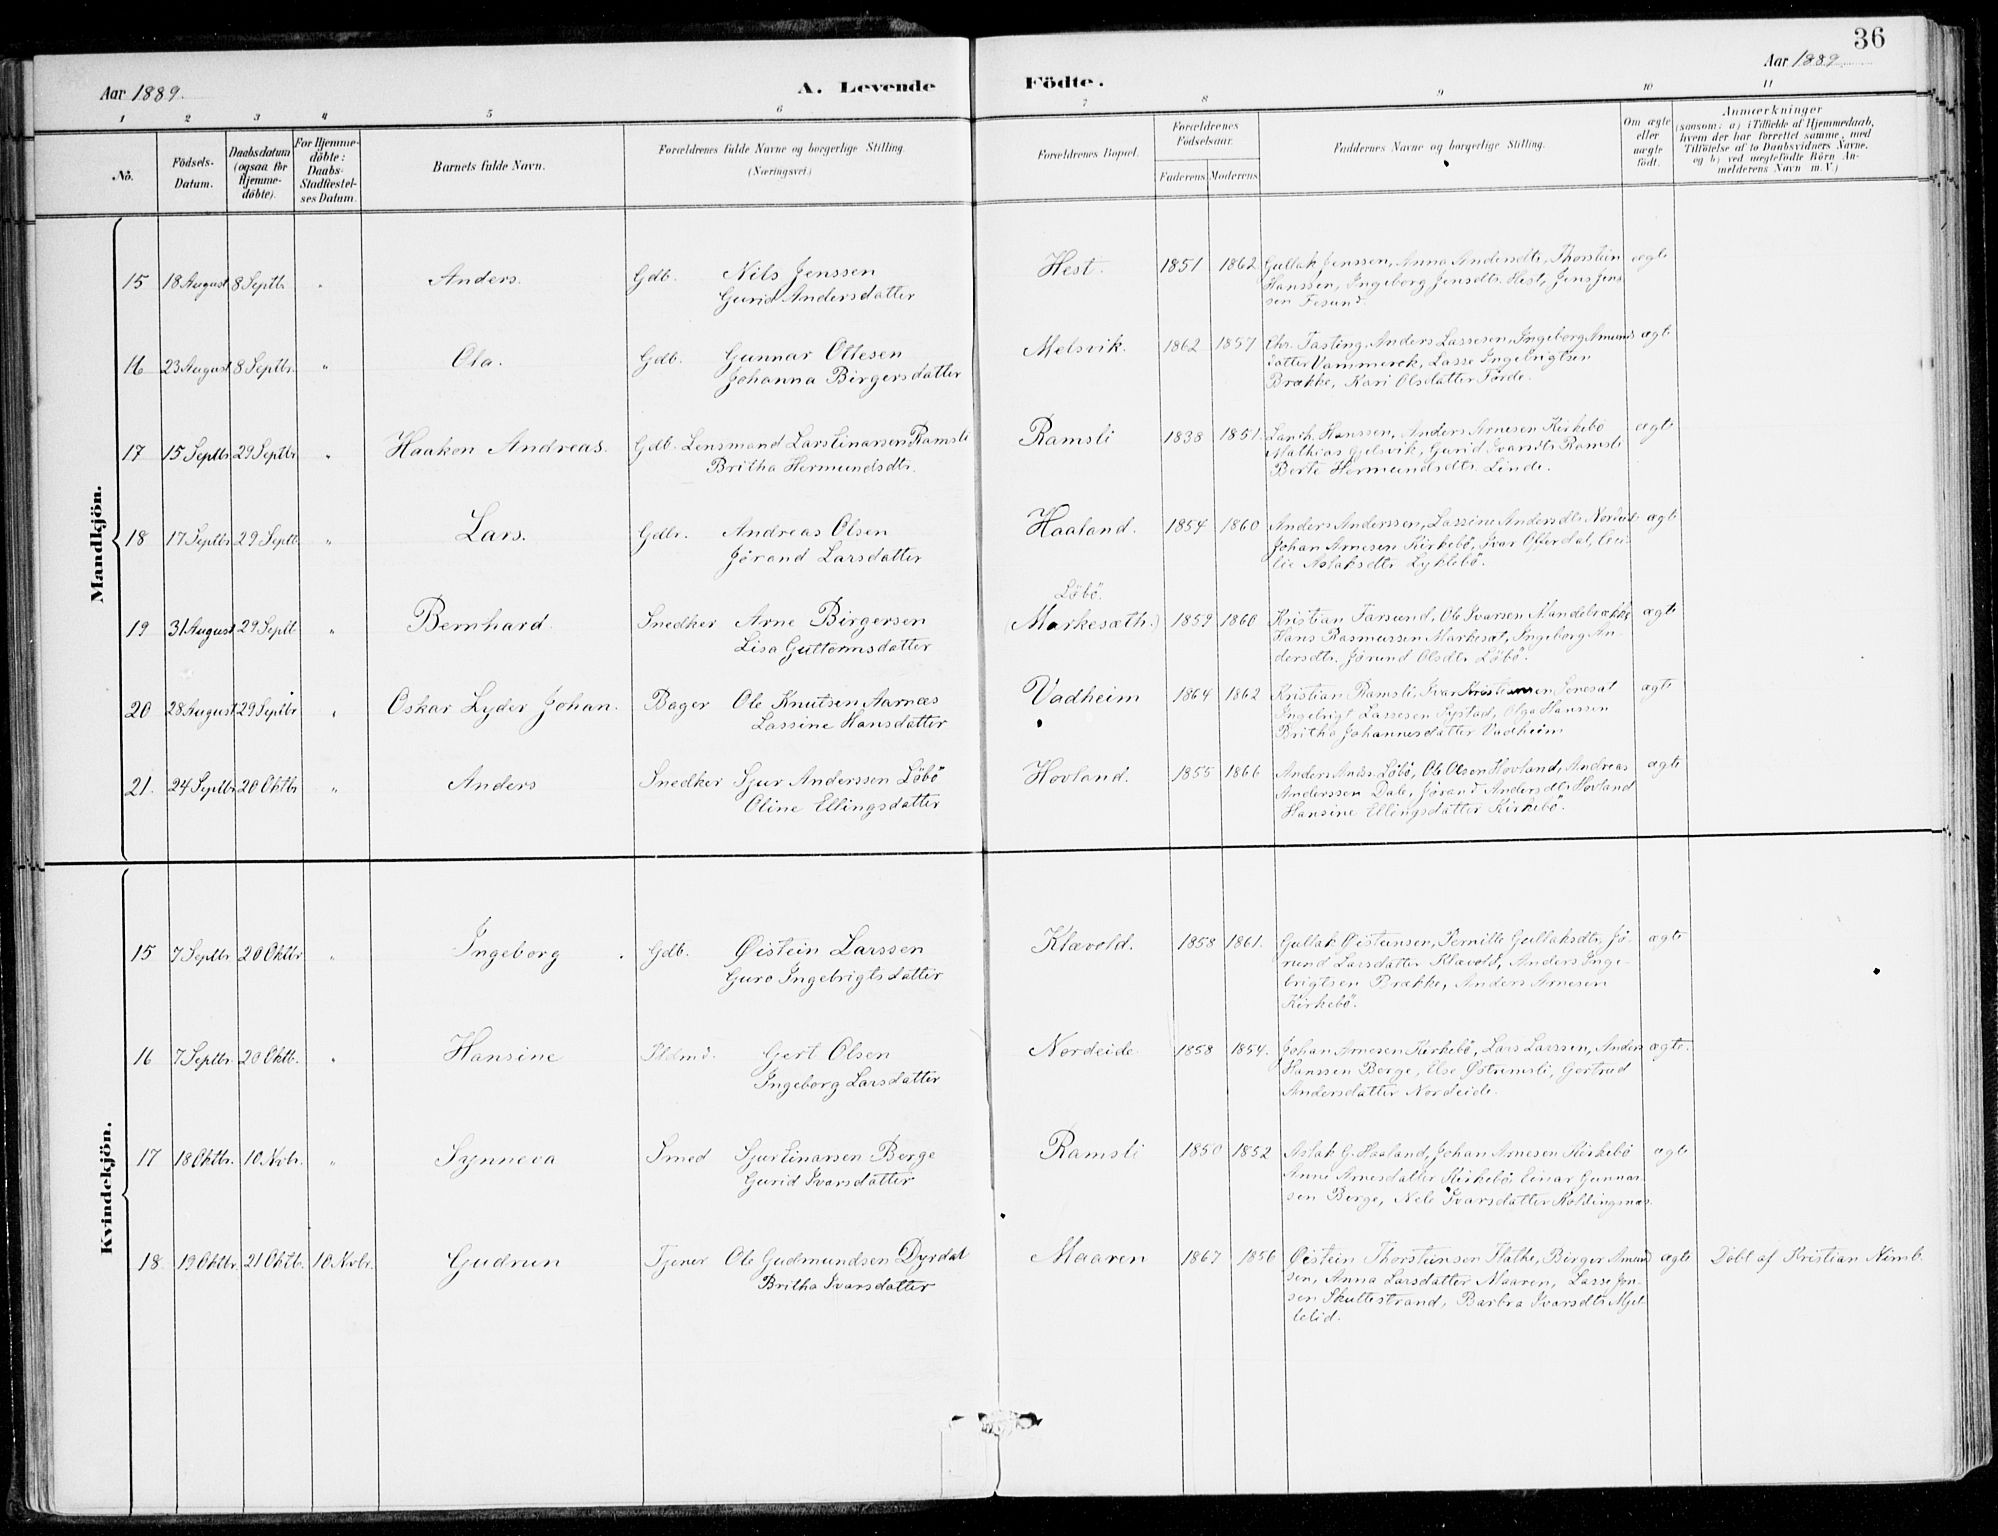 36
Aar 1889.
A. Levende Födte.
Aar 1889
1 2 3 4 5 6 7 8 9 10 11
No.
Födsels-Datum.
Daabsdatum (ogsaa for Hjemme-döbte).
For Hjemme-döbte: Daabs-Stadfæstel-ses Datum.
Barnets fulde Navn.
Forældrenes fulde Navne og borgerlige Stilling. (Næringsvei.)
Forældrenes Bopæl.
Forældrenes Födselsaar.
Faderens Moderens
Faddernes Navne og borgerlige Stilling.
Om ægte eller uægte födt.
Anmærkninger
(saasom: a) i Tilfælde af Hjemmedaab,
hvem der har forrettet samme, med
Tilföielse af to Daabsvidners Navne,
og b) ved uægtefödte Börn An-
melderens Navn m. V.)
Mandkjön.
15 18 August 8 Septbr " Anders. Gdb. Nils Jenssen Hest. 1851 1862 Gullak Jenssen, Anna Andersdtr, Thorstein ægte
Gurid Andersdatter Hanssen, Ingeborg Jensdtr. Hest, Jens Jens
sen
16 23 August 8 Septbr. " Ola. Gdb. Gunnar Ottesen Melsvik. 1862 1857 Chr. Tasting, Anders Lassesen, Ingeborg Amunds ægte
Johanna Birgersdatter datter Vammerek, Lasse Ingebrigtsen
Brække, Kari Olsdatter Förde.
17 15 Septbr 29 Septbr " Haakon Andreas. Gdb. Lensmand Lars Einarsen Ramsli Ramsli 1838 1851. Hanssen, Anders Arnesen Kirkebö ægte
Britha Hermundsdtr. Mathias Gjelsvik, Gurid Ivarsdtr Ramsli
Berte Hermundsdtr. Linde.
18 17 Septbr 29 Septb. " Lars. Gdbr. Andreas Olsen Haaland. 1854 1860 Anders Anderssen, Lassine Andersdtr. ægte
Jørand Larsdatter Johan Arnesen Kirkebö, Ivar Offerdal, Ceci-
lie Aslaksdtr Lyklebö.
Löbö.
19 31 August 29 Septb. " Bernhard. Snedker Arne Birgersen (Markesæth.) 1859 1860 Kristian Farsund, Ole Ivarsen ægte
Lisa Guttormsdatter Hans Rasmussen Markesæt, Ingeborg An-
dersdtr. Jørund Olsdtr Löbö.
20 28 August 29 Septbr " Oskar Lyder Johan. Bager Ole Knutsen Aarnæs Vadheim 1864 1862 Kristian Ramsli, Ivar Kristiansen ægte
Lassine Hansdatter Ingebrigt Lassesen Systad, Olga Hanssen
Britha Johannesdatter Vadheim
21. 24 Septbr 20 Oktbr " Anders Snedker Sjur Anderssen Löbö Hovland. 1855 1866 Anders Ands. Löbö, Ole Olsen Hovland, Andreas ægte
Oline Ellingsdatter Anderssen Dale, Jørand Andersdtr Hovland
Hansine Ellingsdatter Kirkebö.
Kvindekjön.
15 7 Septbr. 20 Oktbr " Ingeborg Gdb. Øistein Larssen Klævold. 1858 1861. Gullak Øistensen, Pernille Gullaksdtr, Jö- ægte
Guro Ingebrigtsdatter rund Larsdatter Klævold, Anders Inge-
brigtsen Brække, Anders Arnesen
Kirkebö.
16 7 Septbr. 20 Oktb. " Hansine Gert Olsen Nordeide 1858 1854. Johan Arnesen Kirkebö, Lars Larssen, Anders ægte.
Ingeborg Larsdatter Hanssen Berge, Else Østremsli, Gertrud
Andersdatter Nordeide.
17 18 Oktbr. 10 Nvbr. " Synneva Smed Sjur Einarsen Berge Ramsli 1850 1852 Aslak G. Haaland, Johan Arnesen Kirkebö ægte
Gurid Ivarsdatter Anne Arnesdatter Kirkebö, Einar Gunnar
sen Berge, Nele Ivarsdatter Koldingsnæs
18 19 Oktbr. 21 Oktb. 10 Nvbr. Gudrun Tjener Ole Gudmundsen Dyrdal Maaren 1867 1856 Øistein Thorsteinsen Flathe, Birger Amund ægte Döbt af Kristian Nimb.
Britha Ivarsdatter sen, Anna Larsdatter Maaren, Lasse Jon-
sen Skuttestrand, Barbra Ivarsdtr Mjel-
lelid.